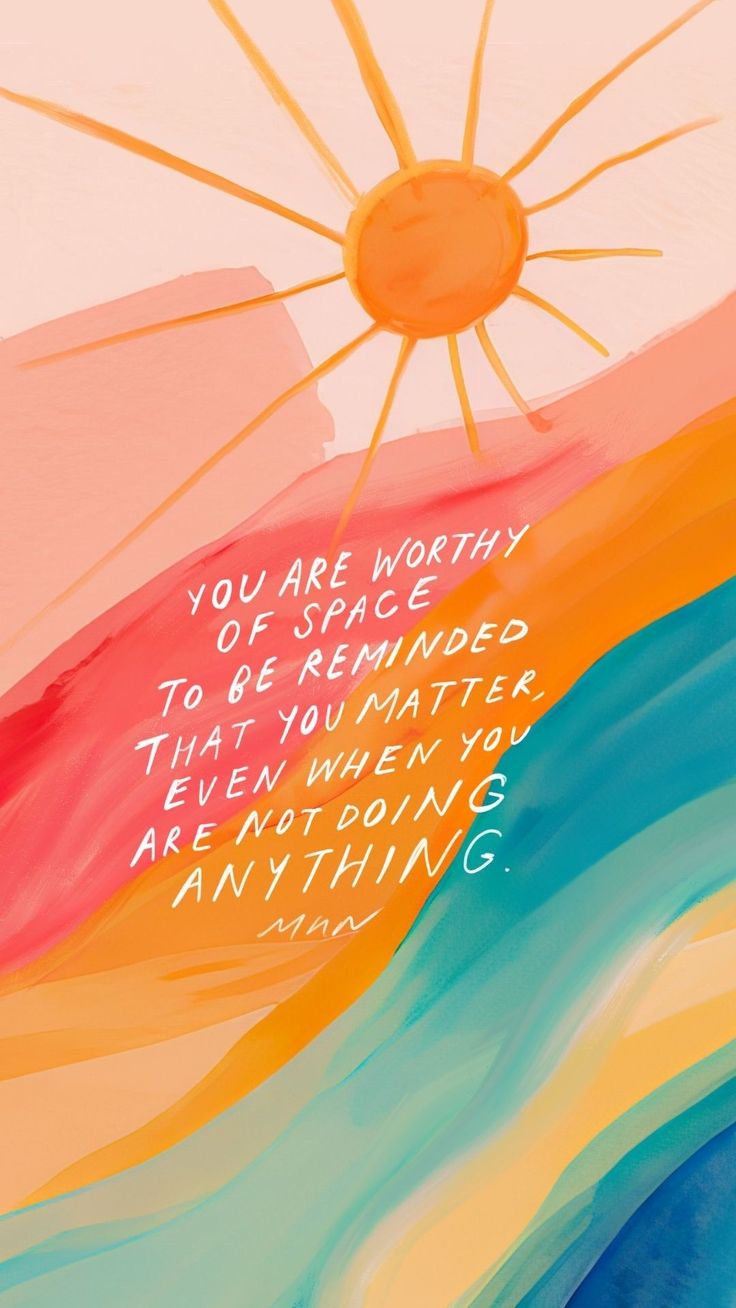 YOU ARE WORTHY
OF SPACE
TO BE REMINDED
THAT YOU MATTER,
EVEN WHEN YOU
ARE NOT DOING
ANYTHING.
MHN